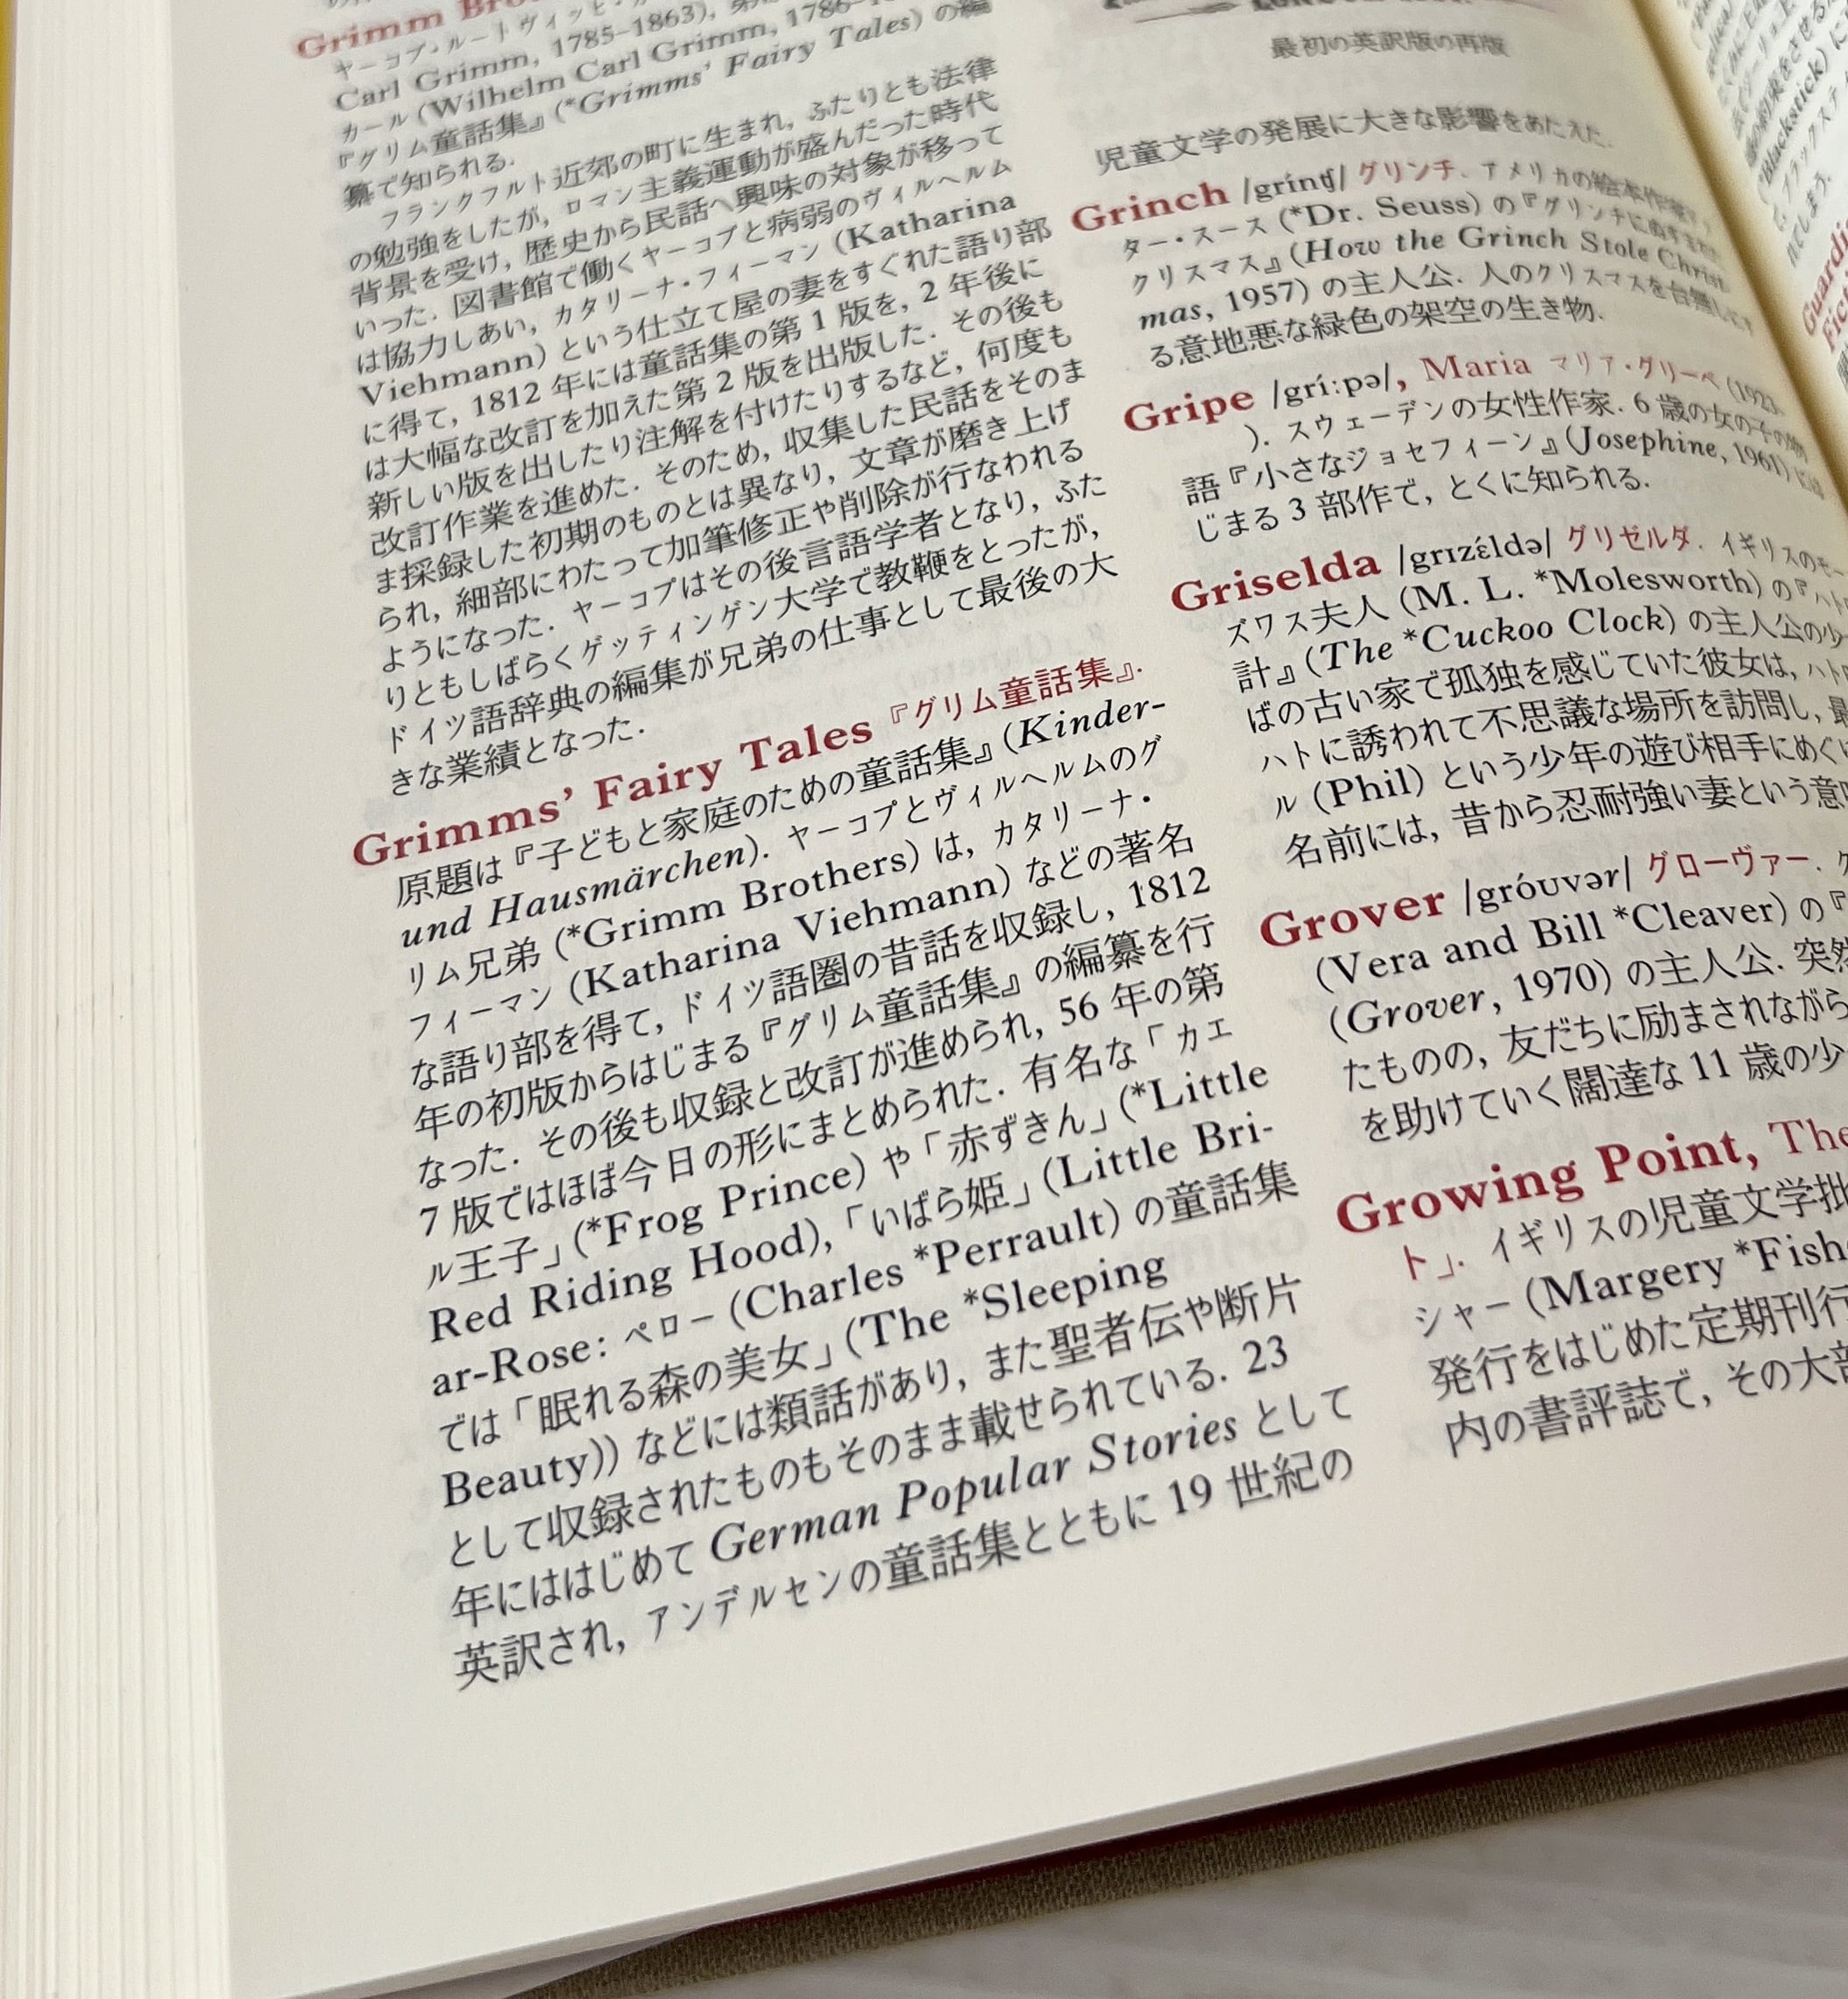 Grimm
ヤーコプ・ルートヴィッヒ・
Carl Grimm, 1785–1863),
カール (Wilhelm Carl Grimm, 1786–
『グリム童話集』(*Grimms' Fairy Tales) の編
纂で知られる.
フランクフルト近郊の町に生まれ, ふたりとも法律
の勉強をしたが, ロマン主義運動が盛んだった時代
背景を受け, 歴史から民話へ興味の対象が移って
いった. 図書館で働くヤーコプと病弱のヴィルヘルム
は協力しあい, カタリーナ・フィーマン (Katharina
Viehmann) という仕立て屋の妻をすぐれた語り部
に得て, 1812 年には童話集の第 1 版を, 2 年後に
は大幅な改訂を加えた第 2 版を出版した. その後も
新しい版を出したり注解を付けたりするなど, 何度も
改訂作業を進めた. そのため, 収集した民話をそのま
ま採録した初期のものとは異なり, 文章が磨き上げ
られ, 細部にわたって加筆修正や削除が行なわれる
ようになった. ヤーコプはその後言語学者となり, ふた
りともしばらくゲッティンゲン大学で教鞭をとったが,
ドイツ語辞典の編集が兄弟の仕事として最後の大
きな業績となった.
Grimms' Fairy Tales 『グリム童話集』.
原題は『子どもと家庭のための童話集』(Kinder-
und Hausmärchen). ヤーコプとヴィルヘルムのグ
リム兄弟 (*Grimm Brothers) は, カタリーナ・
フィーマン (Katharina Viehmann) などの著名
な語り部を得て, ドイツ語圏の昔話を収録し, 1812
年の初版からはじまる『グリム童話集』の編纂を行
なった. その後も収録と改訂が進められ, 56 年の第
7 版ではほぼ今日の形にまとめられた. 有名な「カエ
ル王子」(*Frog Prince) や「赤ずきん」(*Little
Red Riding Hood),「いばら姫」(Little Bri-
ar-Rose: ペロー (Charles *Perrault) の童話集
では「眠れる森の美女」(The *Sleeping
Beauty)) などには類話があり, また聖者伝や断片
として収録されたものもそのまま載せられている. 23
年にははじめて German Popular Stories として
英訳され, アンデルセンの童話集とともに 19 世紀の
最初の英訳版の再版
児童文学の発展に大きな影響をあたえた.
Grinch /gríntʃ/ グリンチ. アメリカの絵本作家
ター・スース (*Dr. Seuss) の『グリンチに
クリスマス』(How the Grinch Stole Christ-
mas, 1957) の主人公. 人のクリスマスを台無しにす
る意地悪な緑色の架空の生き物.
Gripe /gríːpə/, Maria マリア・グリーペ (1923-
). スウェーデンの女性作家. 6 歳の女の子の物
語『小さなジョセフィーン』(Josephine, 1961) には
じまる 3 部作で, とくに知られる.
Griselda /grɪzéldə/ グリゼルダ. イギリスのモー
ズワス夫人 (M. L. *Molesworth) の『ハト
計』(The *Cuckoo Clock) の主人公の少
ばの古い家で孤独を感じていた彼女は, ハト
ハトに誘われて不思議な場所を訪問し, 最
ル (Phil) という少年の遊び相手にめぐ
名前には, 昔から忍耐強い妻という意
Grover /gróʊvər/ グローヴァー.
(Vera and Bill *Cleaver) の『
(Grover, 1970) の主人公. 突然
たものの, 友だちに励まされながら
を助けていく闊達な 11 歳の少
Growing Point, The
ト」. イギリスの児童文学批
シャー (Margery *Fish
発行をはじめた定期刊行
内の書評誌で, その大部